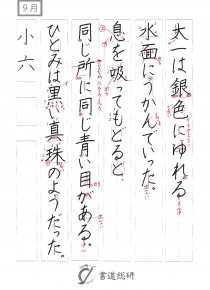 9月
太一は銀色にゆれる
水面にうかんでいった。
息を吸ってもどると、
同じ所に同じ青い目がある。
ひとみは黒い真珠のようだった。
小六
書道総研